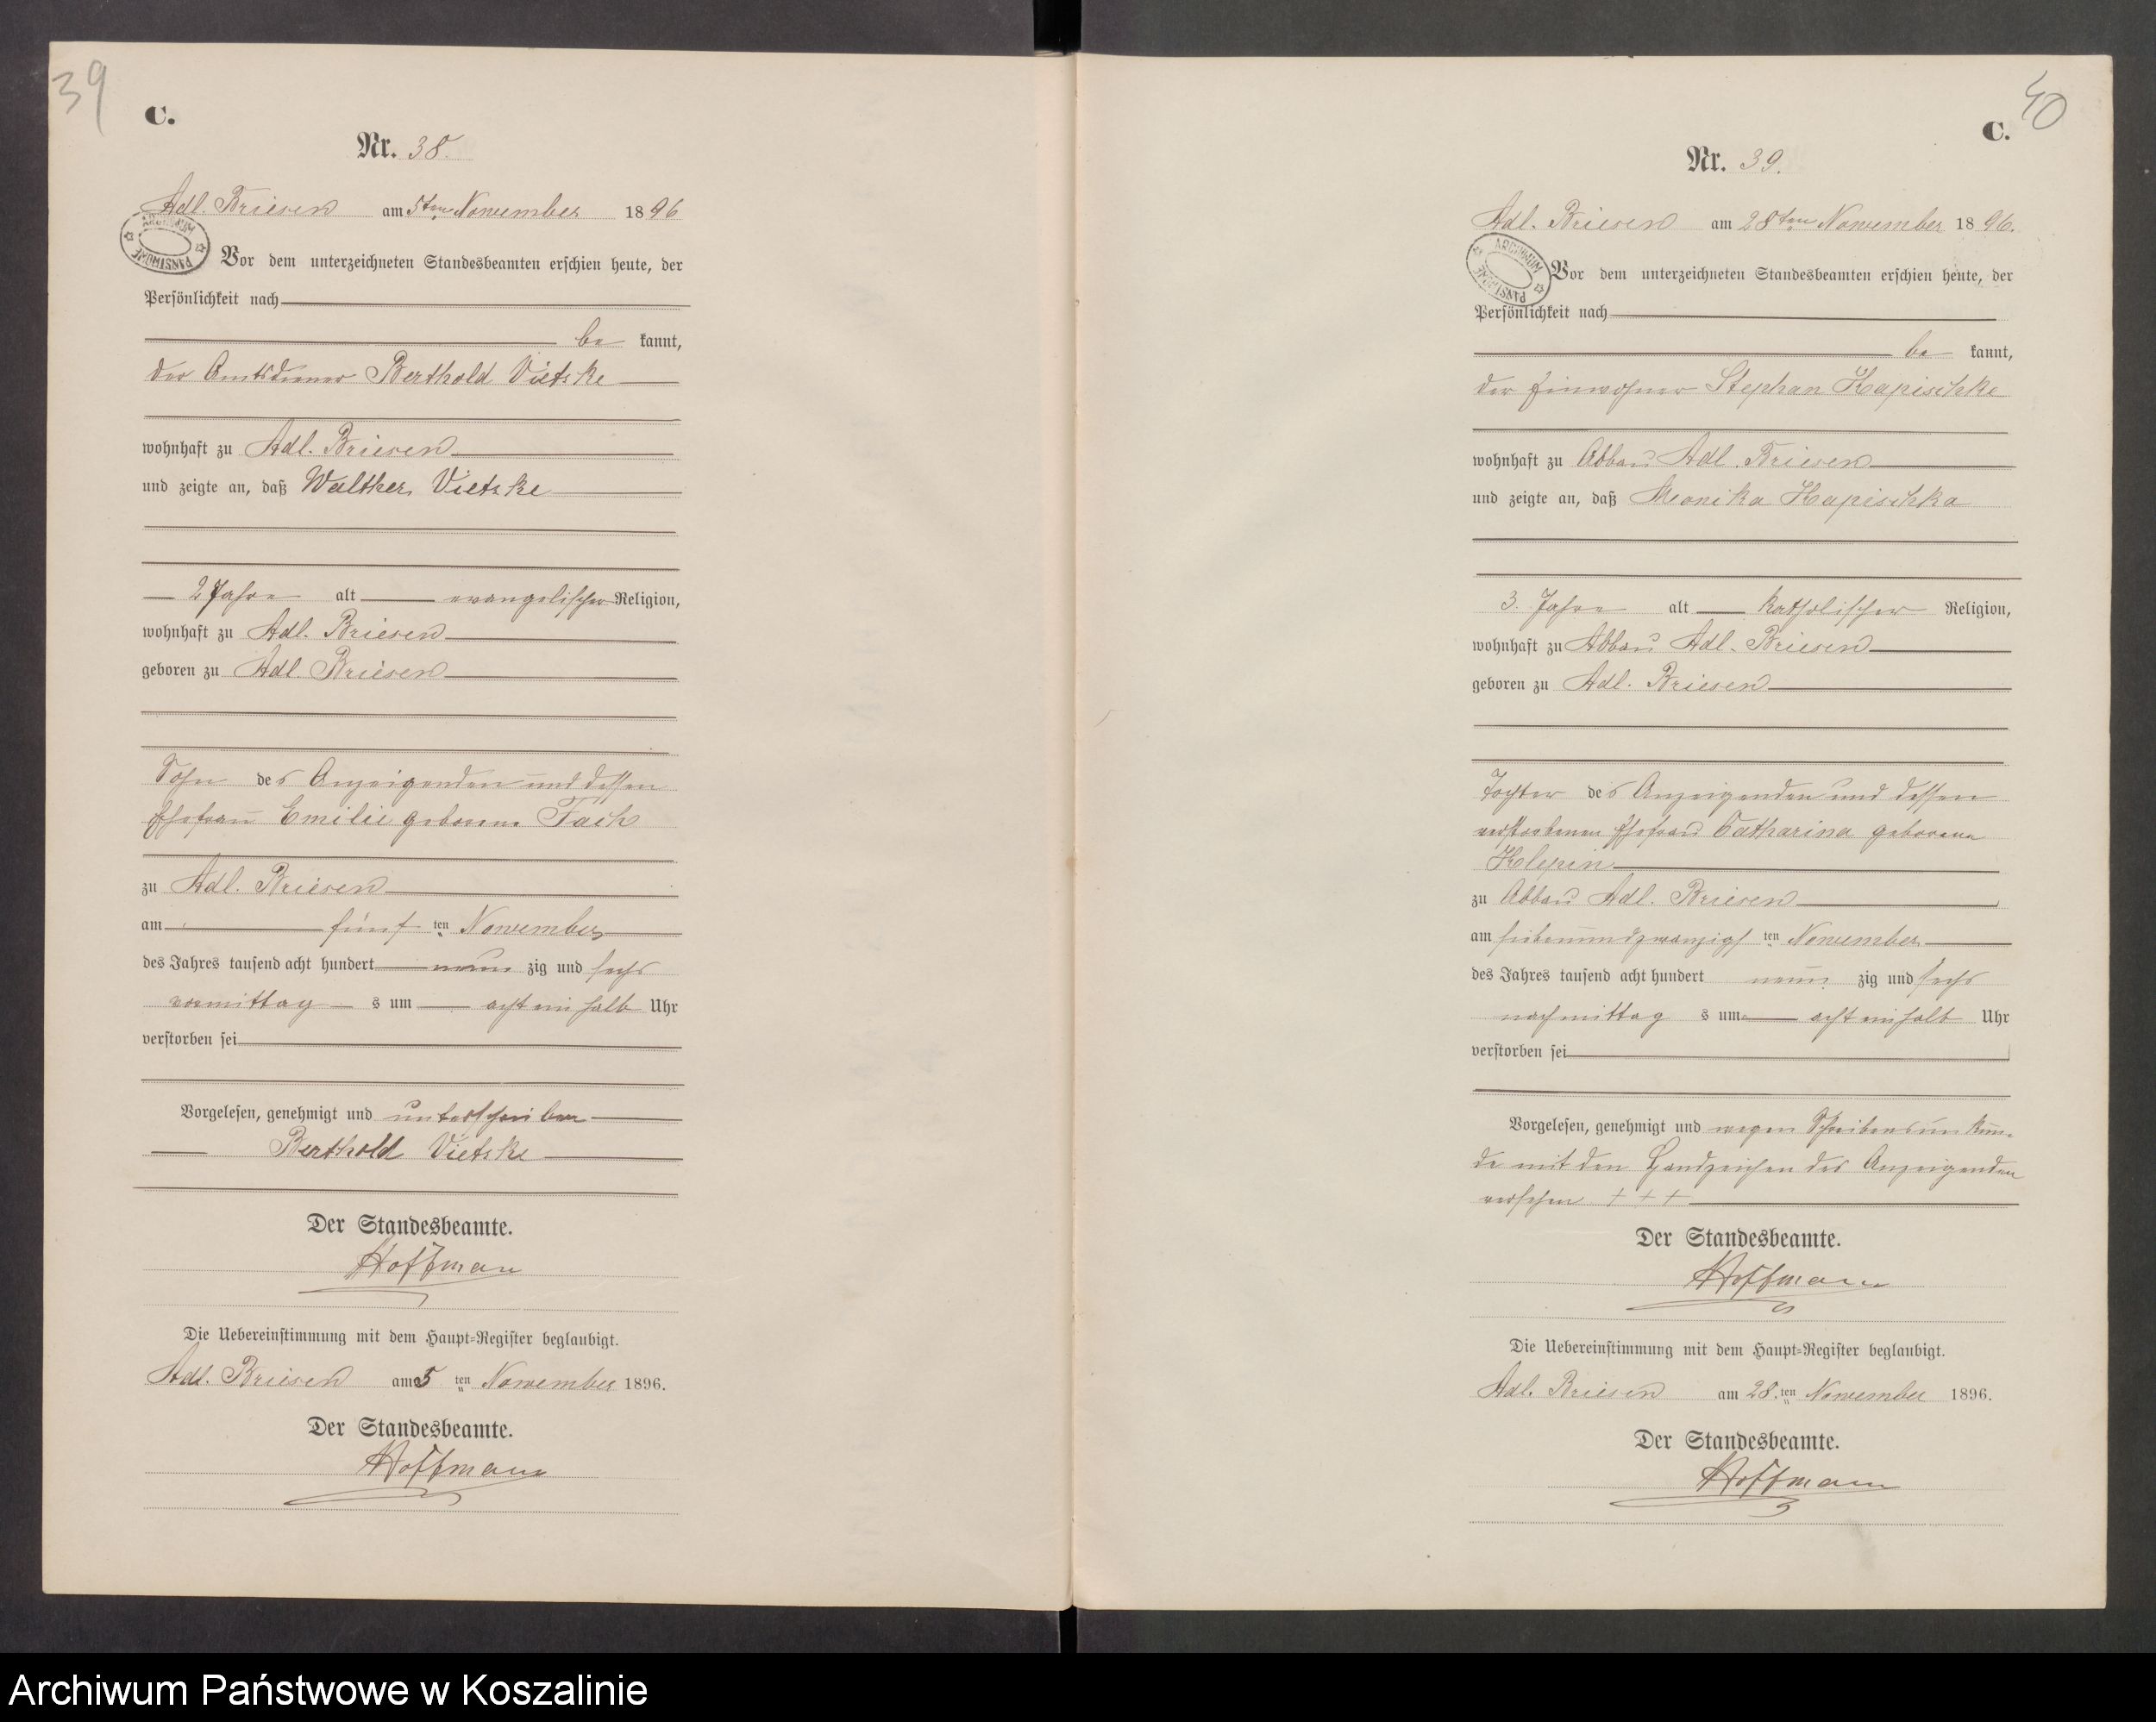 39
C.
Nr. 38.
Adl. Briesen am 5ten November 1896
ARCHIWUM PAŃSTWOWE
Vor dem unterzeichneten Standesbeamten erschien heute, der
Persönlichkeit nach
be kannt,
der Amtsdiener Berthold Vietzke
wohnhaft zu Adl. Briesen
und zeigte an, daß Walther Vietzke
2 Jahre alt evangelischer Religion,
wohnhaft zu Adl. Briesen
geboren zu Adl. Briesen
Sohn des Anzeigenden und dessen
Ehefrau Emilie geborene
zu Adl. Briesen
am fünf ten November
des Jahres tausend acht hundert neun zig und sechs
vormittag s um acht ein halb Uhr
verstorben sei
Vorgelesen, genehmigt und unterschrieben
Berthold Vietzke
Der Standesbeamte.
Hoffmann
Die Uebereinstimmung mit dem Haupt-Register beglaubigt.
Adl. Briesen am 5 ten November 1896.
Der Standesbeamte.
Hoffmann
40
C.
Nr. 39.
Adl. Briesen am 28ten November 1896.
ARCHIWUM PAŃSTWOWE
Vor dem unterzeichneten Standesbeamten erschien heute, der
Persönlichkeit nach
be kannt,
der Einwohner Stephan Kapischke
wohnhaft zu Abbau Adl. Briesen
und zeigte an, daß Monika Kapischka
3. Jahre alt katholischer Religion,
wohnhaft zu Abbau Adl. Briesen
geboren zu Adl. Briesen
Tochter des Anzeigenden und dessen
verstorbenen Ehefrau Catharina geborene
Klepin
zu Abbau Adl. Briesen
am siebenundzwanzigs ten November
des Jahres tausend acht hundert neun zig und sechs
nachmittag s um acht ein halb Uhr
verstorben sei
Vorgelesen, genehmigt und wegen Schreibensunkun-
de mit den Handzeichen des Anzeigenden
versehen + + +
Der Standesbeamte.
Hoffmann
Die Uebereinstimmung mit dem Haupt-Register beglaubigt.
Adl. Briesen am 28. ten November 1896.
Der Standesbeamte.
Hoffmann
Archiwum Państwowe w Koszalinie